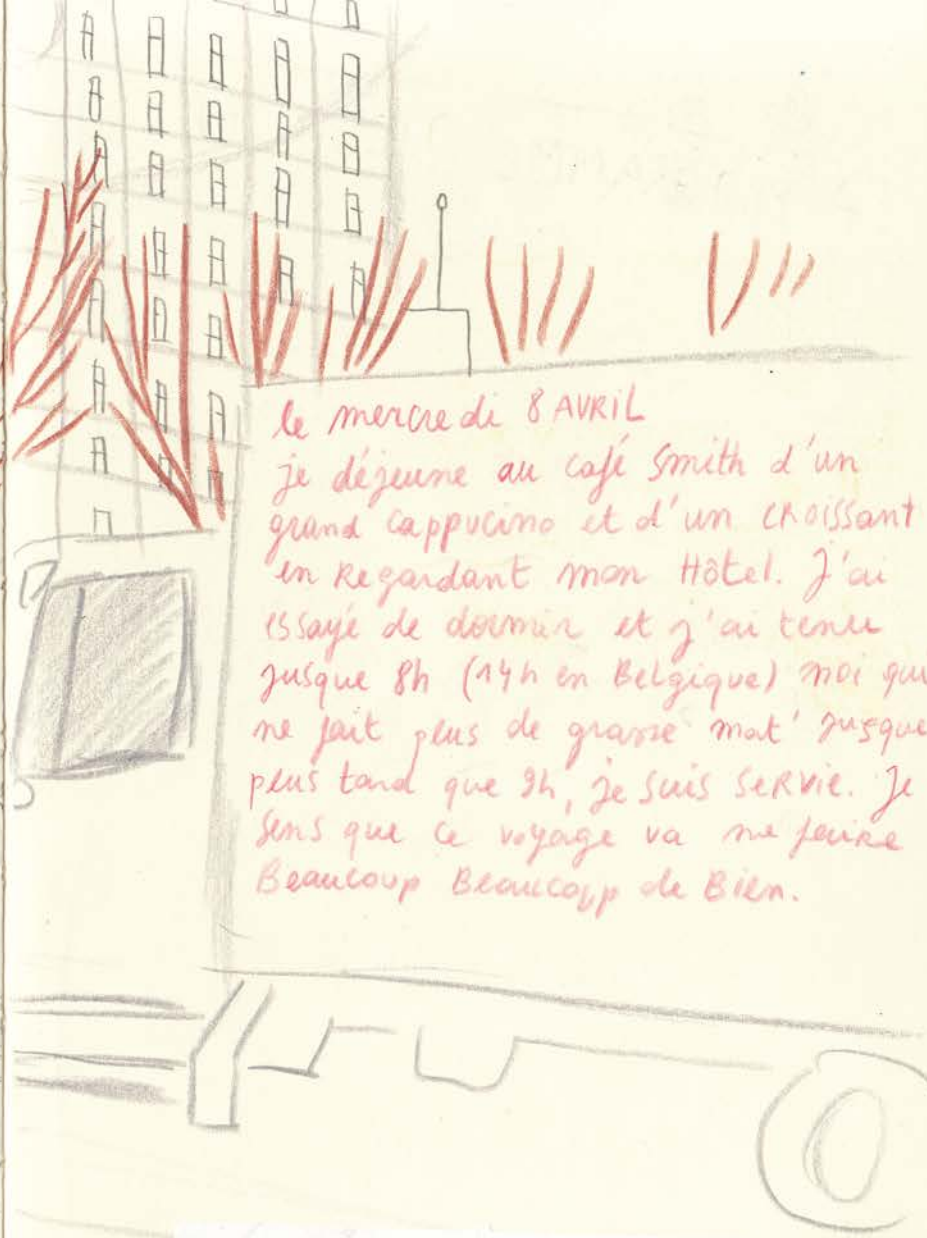 le mercredi 8 AVRIL
je déjeune au café Smith d'un
grand cappucino et d'un cRoissant
en Regardant mon Hôtel. J'ai
essayé de dormir et j'ai tenu
jusque 8h (14h en Belgique) moi qui
ne fait plus de grasse mat' jusque
plus tard que 9h, je suis seRvie. Je
sens que ce voyage va me faire
Beaucoup Beaucoup de Bien.